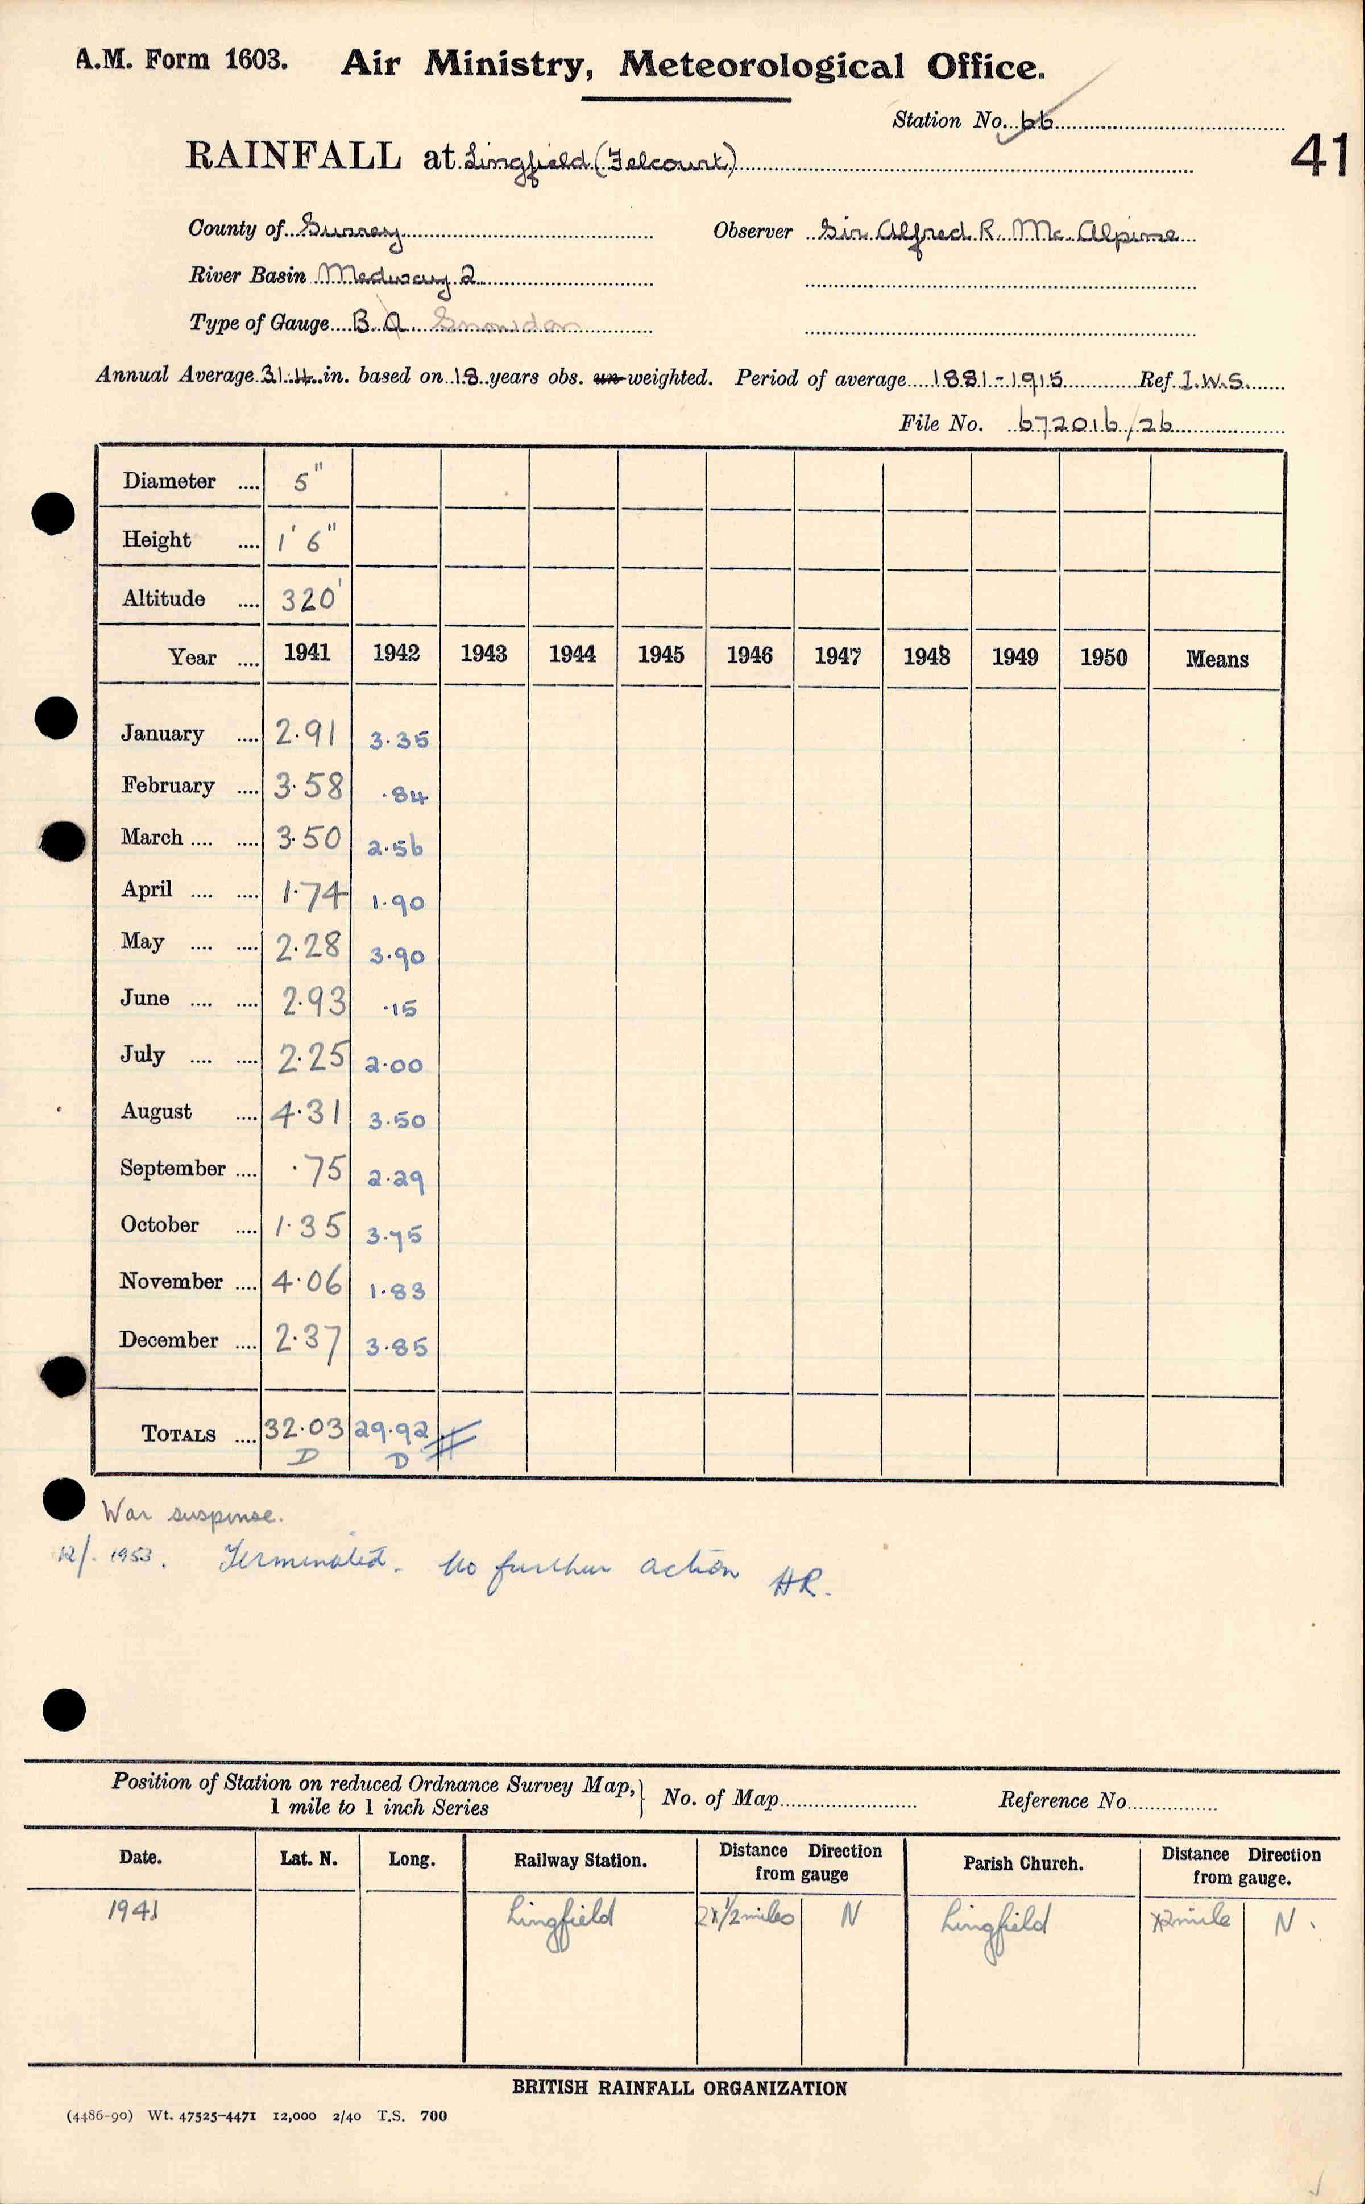 A.M. Form 1603. Air Ministry, Meteorological Office.
Station No. 66
41
RAINFALL at Lingfield (Felcourt)
County of Surrey Observer Sir Alfred R. Mc. Alpine
River Basin Medway 2
Type of Gauge B. Q. Snowdon
Annual Average 31.4 in. based on 18 years obs. un-weighted. Period of average 1881-1915 Ref. I.W.S.
File No. 672016/26
Diameter .... 5"
Height .... 1' 6"
Altitude .... 320'
Year .... 1941 1942 1943 1944 1945 1946 1947 1948 1949 1950 Means
January .... 2.91 3.35
February .... 3.58 .84
March .... .... 3.50 2.56
April .... .... 1.74 1.90
May .... .... 2.28 3.90
June .... .... 2.93 .15
July .... .... 2.25 2.00
August .... 4.31 3.50
September .... .75 2.29
October .... 1.35 3.75
November .... 4.06 1.83
December .... 2.37 3.85
TOTALS .... 32.03 29.92
D D
War suspense.
12/. 1953. Terminated. No further action HR.
Position of Station on reduced Ordnance Survey Map, } No. of Map Reference No.
1 mile to 1 inch Series
Date. Lat. N. Long. Railway Station. Distance Direction from gauge Parish Church. Distance Direction from gauge.
1941 Lingfield 1/2 miles N Lingfield 2 mile N.
BRITISH RAINFALL ORGANIZATION
(4486-90) Wt. 47525-4471 12,000 2/40 T.S. 700